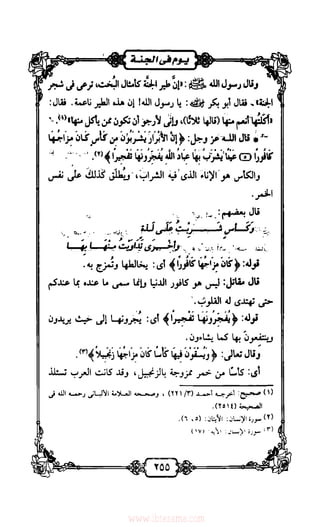 يوم في الجنة
وقال رسول الله ﷺ: «إن طير الجنة كأمثال البُخت، ترعى في شجر
الجنة». فقال أبو بكر ﷺ: يا رسول الله! إن هذه الطير ناعمة. فقال:
«أكلتها أنعم منها (قالها ثلاثًا)، وإني لأرجو أن تكون ممن يأكل منها»(١).
* قال الله عز وجل: ﴿إِنَّ الأَبْرَارَ يَشْرَبُونَ مِن كَأْسٍ كَانَ مِزَاجُهَا
كَافُورًا ⑤ عَيْنًا يَشْرَبُ بِهَا عِبَادُ اللَّهِ يُفَجِّرُونَهَا تَفْجِيرًا﴾(٢).
والكأس هو الإناء الذي فيه الشراب، ويُطلق كذلك على نفس
الخمر.
قال بعضهم:
وكأس شربت على لذة
وأخرى تداويت منها بها
قوله: ﴿كَانَ مِزَاجُهَا كَافُورًا﴾ أي: يخالطها وتُمزج به.
قال مقاتل: ليس هو كافور الدنيا وإنما سمى ما عنده بما عندكم
حتى تهتدي له القلوب.
قوله: ﴿يُفَجِّرُونَهَا تَفْجِيرًا﴾ أي: يُجرونها إلى حيث يريدون
وينتفعون بها كما يشاءون.
وقال تعالى: ﴿وَيُسْقَوْنَ فِيهَا كَأْسًا كَانَ مِزَاجُهَا زَنجَبِيلاً﴾(٣).
أي: كأسًا من خمر ممزوجة بالزنجبيل، وقد كانت العرب تستلذ
(١) صحيح: أخرجه أحمد (٣/ ٢٢١)، وصححه العلامة الألباني رحمه الله في
الصحيحة (٢٥١٤).
(٢) سورة الإنسان: الآيتان: (٥، ٦).
(٣) سورة الإنسان: الآية: (١٧).
٢٥٥
www.ibtesama.com